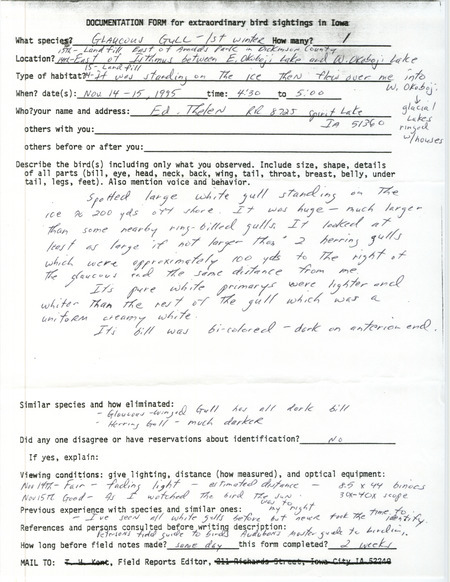 DOCUMENTATION FORM for extraordinary bird sightings in Iowa
What species? GLAUCOUS GULL - 1st winter How many? 1
15th - Landfill, East of Arnolds Park in Dickinson County
Location? 14th - East of Isthmus between E. Okoboji Lake and W. Okoboji Lake
15 - Landfill
Type of habitat? 14 - It was standing on the ice then flew over me into
W. Okoboji
When? date(s): Nov 14-15, 1995 time: 4:30 to 5:00
glacial
lakes
ringed
w/houses
Who? your name and address: Ed Thelen RR 8225 Spirit Lake
IA 51360
others with you:
others before or after you:
Describe the bird(s) including only what you observed. Include size, shape, details
of all parts (bill, eye, head, neck, back, wing, tail, throat, breast, belly, under
tail, legs, feet). Also mention voice and behavior.
Spotted large white gull standing on the
ice ≈ 200 yds off shore. It was huge - much larger
than some nearby ring-billed gulls. It looked at
least as large if not larger than 2 herring gulls
which were approximately 100 yds to the right of
the glaucous and the same distance from me.
Its pure white primarys were lighter and
whiter than the rest of the gull which was a
uniform creamy white.
Its bill was bi-colored - dark on anterior end.
Similar species and how eliminated:
- Glaucous-winged Gull has all dark bill
- Herring Gull - much darker
Did any one disagree or have reservations about identification? No
If yes, explain:
Viewing conditions: give lighting, distance (how measured), and optical equipment:
Nov 14th - Fair - fading light - estimated distance - 8.5 x 44 binocs
Nov 15th Good - As I watched the bird the sun 30x-40x scope
was to
my right
Previous experience with species and similar ones:
- I've seen all white gulls before but never took the time to
identify.
References and persons consulted before writing description:
Petersons field guide to birds Audubons master guide to birding.
How long before field notes made? same day this form completed? 2 weeks
MAIL TO: T. H. Kent, Field Reports Editor, 211 Richards Street, Iowa City IA 52240